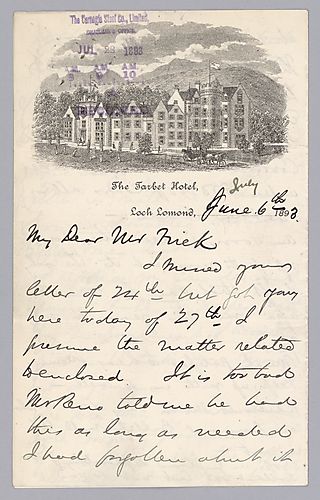 The Carnegie Steel Co., Limited,
CHAIRMAN'S OFFICE.
JUL 1893
AM AM
10
The Tarbet Hotel,
July
Loch Lomond, June 6th 1893.
My Dear Mr Frick
I missed your
letter of 24th but got your
here today of 27th. I
presume the matter related
to enclosed. It is too bad
Mr Reno told me he had
this as long as needed
I had forgotten about it